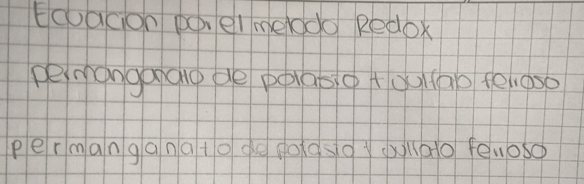 Ecuacion por el metodo Redox
permanganato de potasio + sulfato ferroso
permanganato de potasio + sulfato ferroso